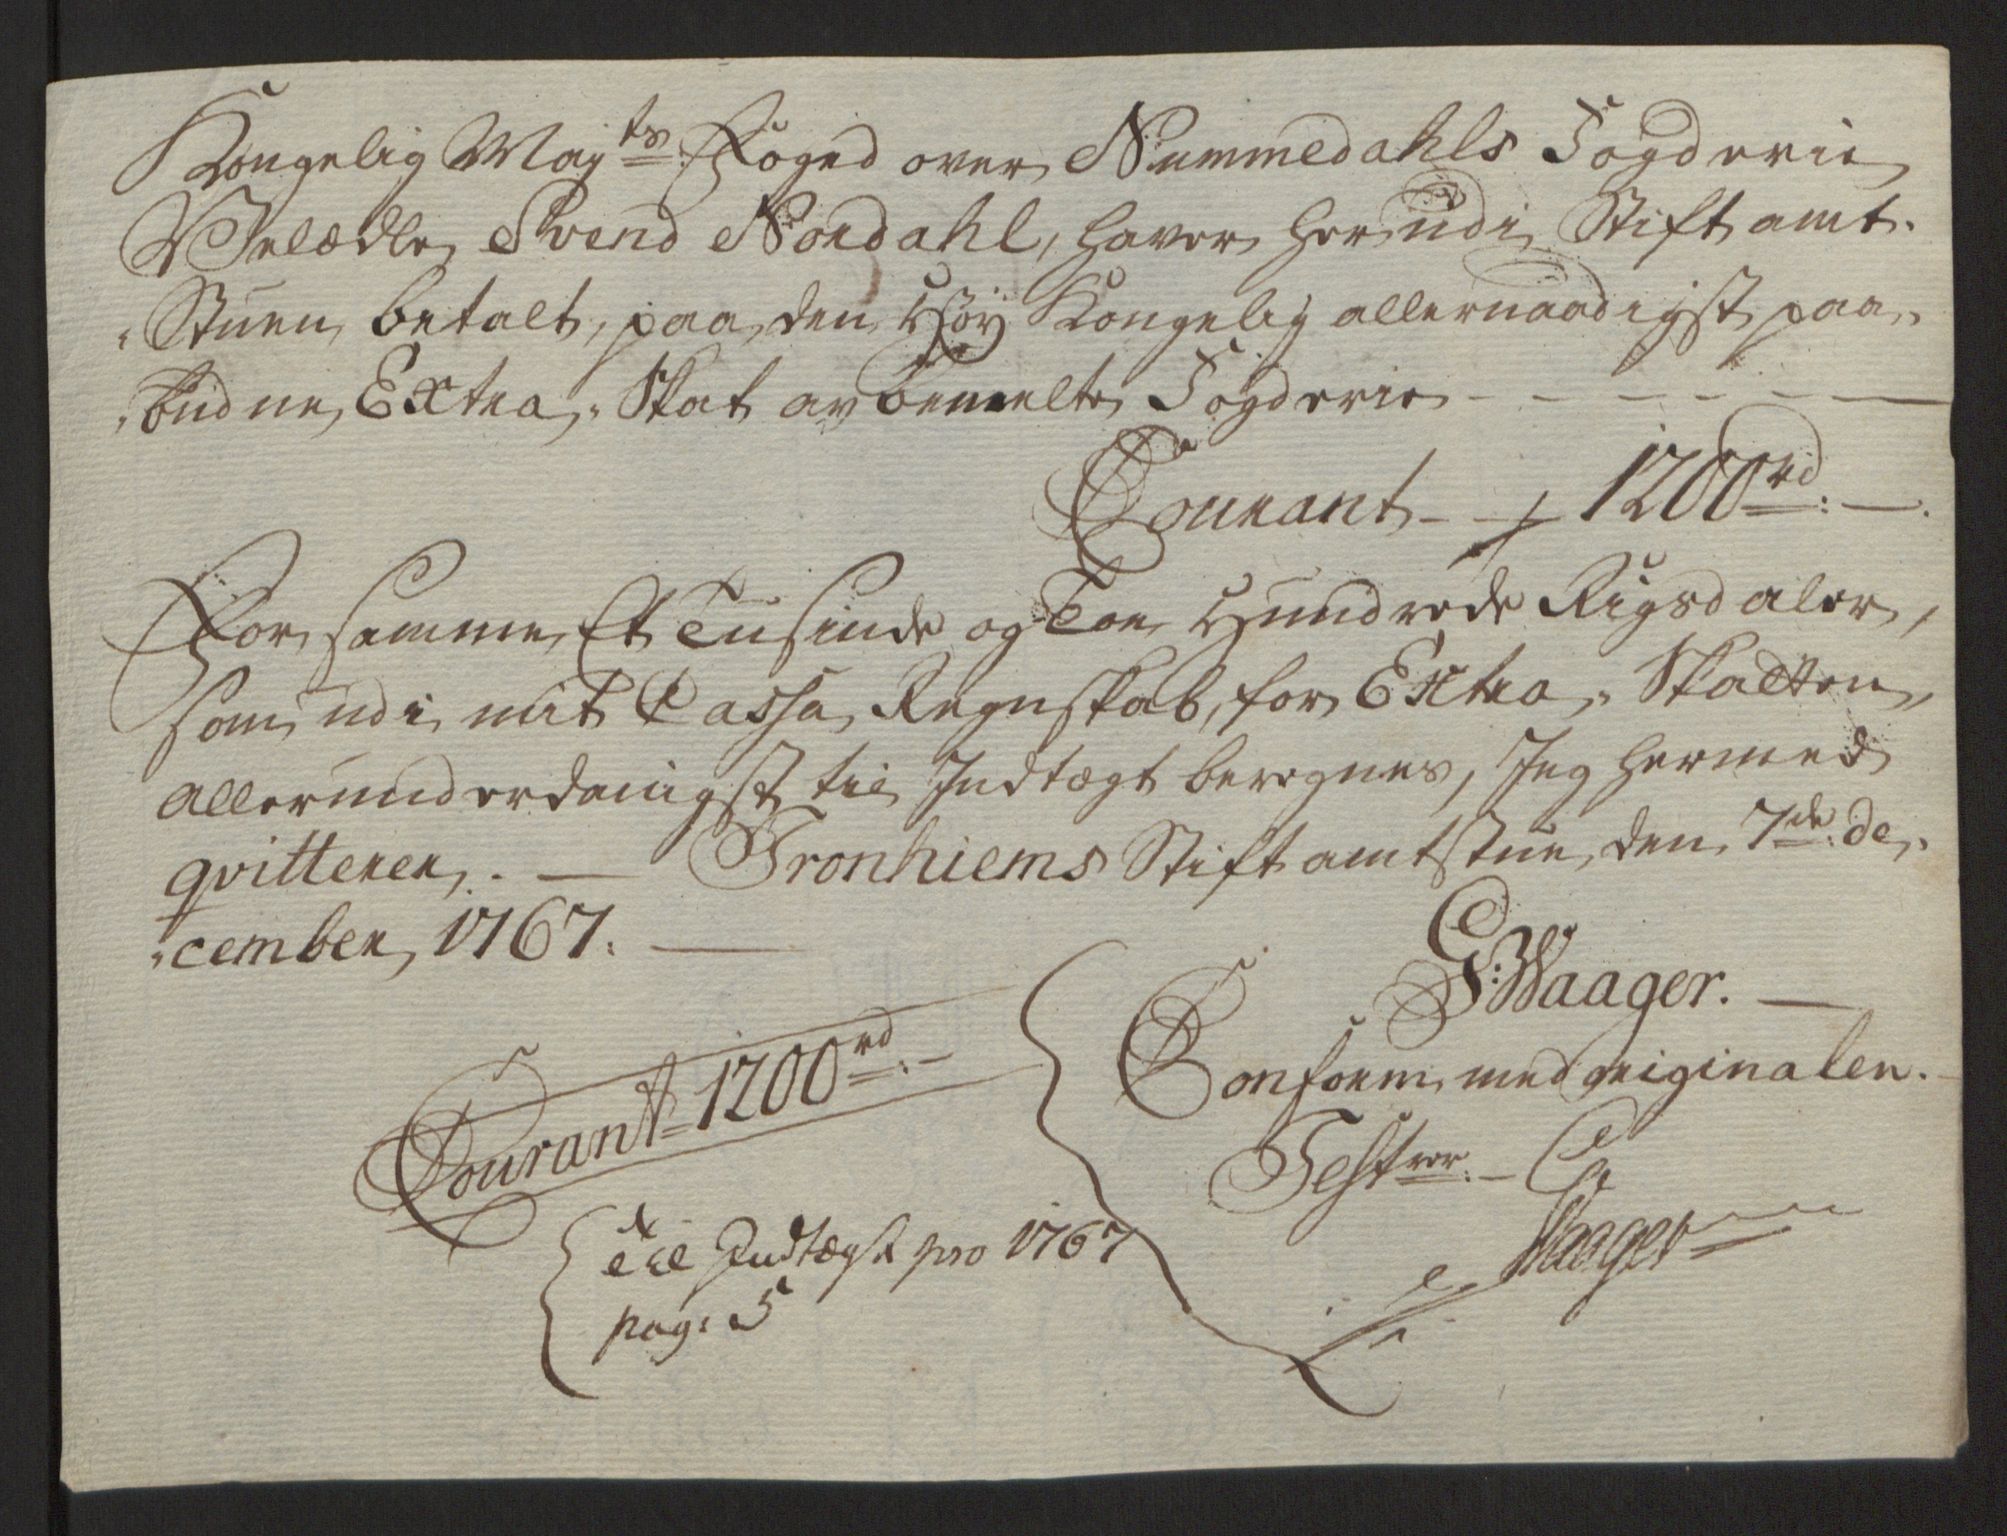 Kongelig Mayts Foged over Nummedahls Fogderie
Velædle Svend Nordahl, haver herudi Stiftamt-
Stuen betalt, paa den Høy Kongelig allernaadigst paa-
budne Extra-Skat av bemelte Fogderie
Courant - 1200rd: -
For samme Et Tusinde og Toe Hundrede Rigsdaler,
som udi mit Cassa Regnskab, for Extra-Skatten,
allerunderdanigst til Indtægt beregnes, Jeg hermed
qvitterer. - Tronhiems Stiftamtstue, den 7de De-
cember 1767.
G: Waager. -
Conform med originalen.
Courant 1200rd: -
Testerer. -
Waager
til Indtægt pro 1767
pag: 5